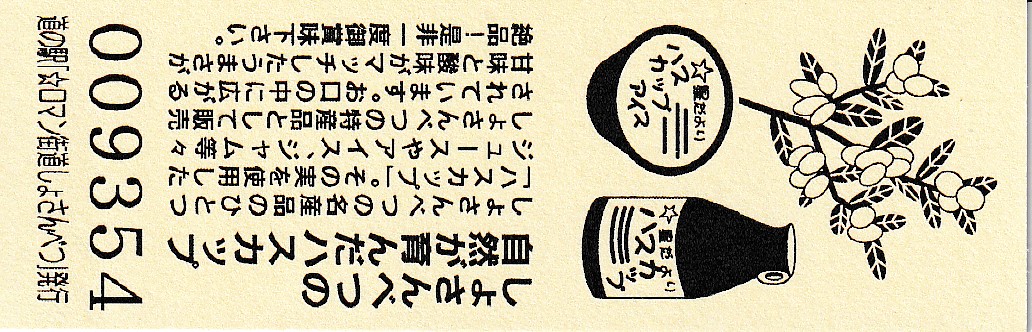 しょさんべつの
自然が育んだハスカップ
しょさんべつの名産品のひとつ
「ハスカップ」。その実を使用した
ジュースやアイス、ジャム等々
しょさんべつの特産品として販売
されています。お口の中に広がる
甘味と酸味がマッチしたうまさが
絶品!是非一度御賞味下さい。
009354
道の駅「☆ロマン街道しょさんべつ」発行
☆星だより
ハス
カップ
アイス
☆星だより
ハスカ
ップ